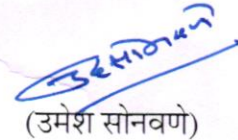 (उमेश सोनवणे)